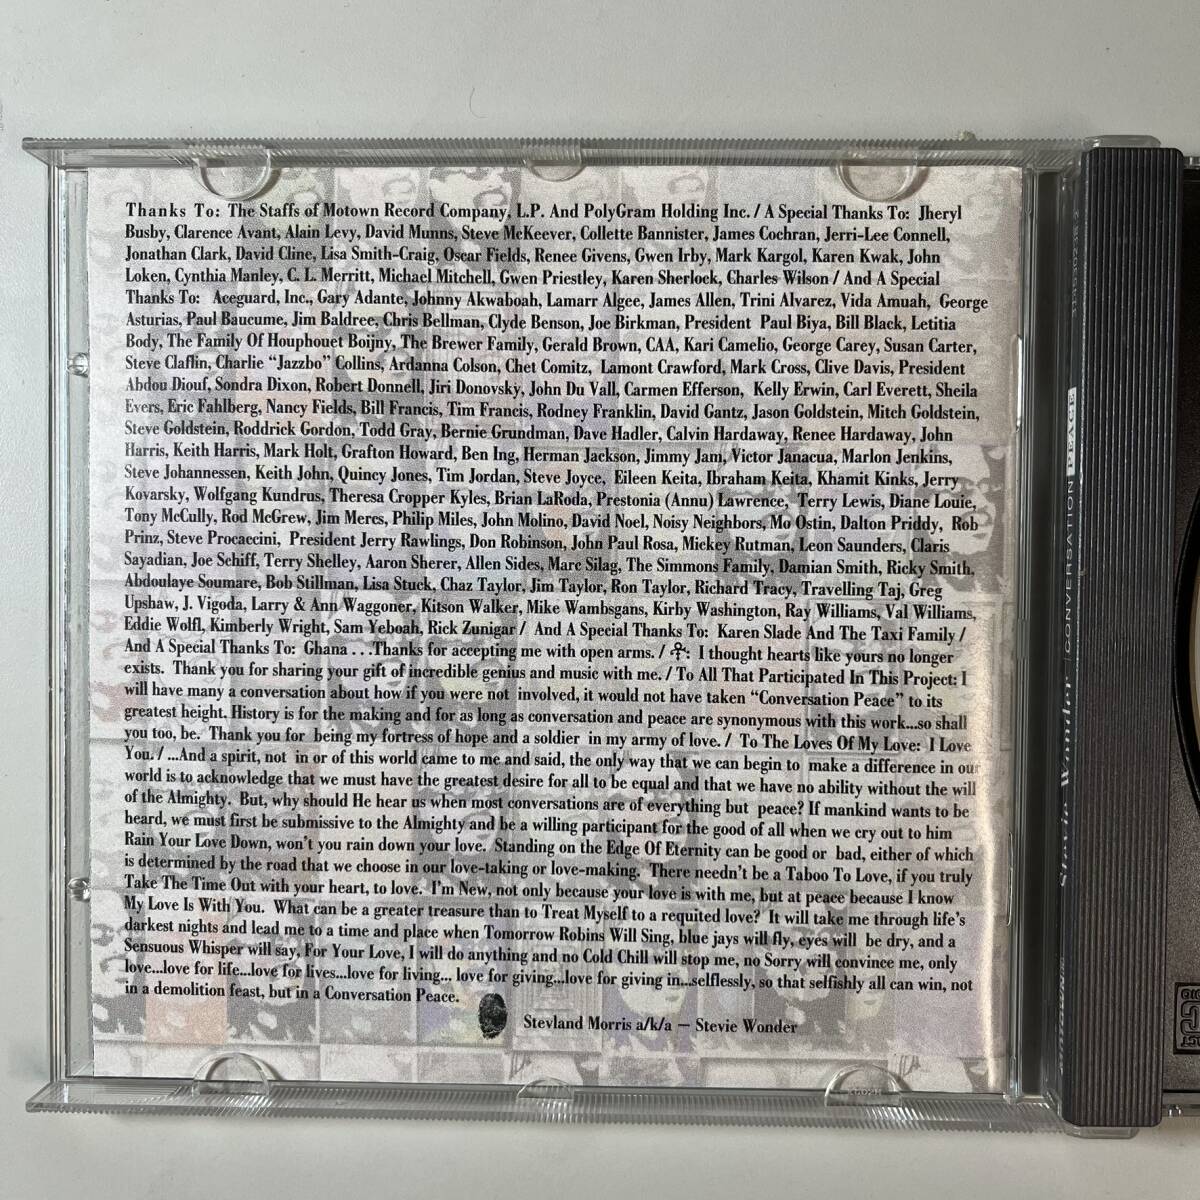 Thanks To: The Staffs of Motown Record Company, L.P. And PolyGram Holding Inc. / A Special Thanks To: Jheryl
Busby, Clarence Avant, Alain Levy, David Munns, Steve McKeever, Collette Bannister, James Cochran, Jerri-Lee Connell,
Jonathan Clark, David Cline, Lisa Smith-Craig, Oscar Fields, Renee Givens, Gwen Irby, Mark Kargol, Karen Kwak, John
Loken, Cynthia Manley, C. L. Merritt, Michael Mitchell, Gwen Priestley, Karen Sherlock, Charles Wilson / And A Special
Thanks To: Aceguard, Inc., Gary Adante, Johnny Akwaboah, Lamarr Algee, James Allen, Trini Alvarez, Vida Amuah, George
Asturias, Paul Baucume, Jim Baldree, Chris Bellman, Clyde Benson, Joe Birkman, President Paul Biya, Bill Black, Letitia
Body, The Family Of Houphouet Boijny, The Brewer Family, Gerald Brown, CAA, Kari Camelio, George Carey, Susan Carter,
Steve Claflin, Charlie "Jazzbo" Collins, Ardanna Colson, Chet Comitz, Lamont Crawford, Mark Cross, Clive Davis, President
Abdou Diouf, Sondra Dixon, Robert Donnell, Jiri Donovsky, John Du Vall, Carmen Efferson, Kelly Erwin, Carl Everett, Sheila
Evers, Eric Fahlberg, Nancy Fields, Bill Francis, Tim Francis, Rodney Franklin, David Gantz, Jason Goldstein, Mitch Goldstein,
Steve Goldstein, Roddrick Gordon, Todd Gray, Bernie Grundman, Dave Hadler, Calvin Hardaway, Renee Hardaway, John
Harris, Keith Harris, Mark Holt, Grafton Howard, Ben Ing, Herman Jackson, Jimmy Jam, Victor Janacua, Marlon Jenkins,
Steve Johannessen, Keith John, Quincy Jones, Tim Jordan, Steve Joyce, Eileen Keita, Ibraham Keita, Khamit Kinks, Jerry
Kovarsky, Wolfgang Kundrus, Theresa Cropper Kyles, Brian LaRoda, Prestonia (Annu) Lawrence, Terry Lewis, Diane Louie,
Tony McCully, Rod McGrew, Jim Mercs, Philip Miles, John Molino, David Noel, Noisy Neighbors, Mo Ostin, Dalton Priddy, Rob
Prinz, Steve Procaccini, President Jerry Rawlings, Don Robinson, John Paul Rosa, Mickey Rutman, Leon Saunders, Claris
Sayadian, Joe Schiff, Terry Shelley, Aaron Sherer, Allen Sides, Marc Silag, The Simmons Family, Damian Smith, Ricky Smith,
Abdoulaye Soumare, Bob Stillman, Lisa Stuck, Chaz Taylor, Jim Taylor, Ron Taylor, Richard Tracy, Travelling Taj, Greg
Upshaw, J. Vigoda, Larry & Ann Waggoner, Kitson Walker, Mike Wambsgans, Kirby Washington, Ray Williams, Val Williams,
Eddie Wolfl, Kimberly Wright, Sam Yeboah, Rick Zunigar / And A Special Thanks To: Karen Slade And The Taxi Family /
And A Special Thanks To: Ghana . . .Thanks for accepting me with open arms. / : I thought hearts like yours no longer
exists. Thank you for sharing your gift of incredible genius and music with me. / To All That Participated In This Project: I
will have many a conversation about how if you were not involved, it would not have taken "Conversation Peace" to its
greatest height. History is for the making and for as long as conversation and peace are synonymous with this work...so shall
you too, be. Thank you for being my fortress of hope and a soldier in my army of love. / To The Loves Of My Love: I Love
You. / ...And a spirit, not in or of this world came to me and said, the only way that we can begin to make a difference in our
world is to acknowledge that we must have the greatest desire for all to be equal and that we have no ability without the will
of the Almighty. But, why should He hear us when most conversations are of everything but peace? If mankind wants to be
heard, we must first be submissive to the Almighty and be a willing participant for the good of all when we cry out to him
Rain Your Love Down, won't you rain down your love. Standing on the Edge Of Eternity can be good or bad, either of which
is determined by the road that we choose in our love-taking or love-making. There needn't be a Taboo To Love, if you truly
Take The Time Out with your heart, to love. I'm New, not only because your love is with me, but at peace because I know
My Love Is With You. What can be a greater treasure than to Treat Myself to a requited love? It will take me through life's
darkest nights and lead me to a time and place when Tomorrow Robins Will Sing, blue jays will fly, eyes will be dry, and a
Sensuous Whisper will say, For Your Love, I will do anything and no Cold Chill will stop me, no Sorry will convince me, only
love...love for life...love for lives...love for living... love for giving...love for giving in...selflessly, so that selfishly all can win, not
in a demolition feast, but in a Conversation Peace.
Stevland Morris a/k/a — Stevie Wonder
Stevie Wonder CONVERSATION PEACE